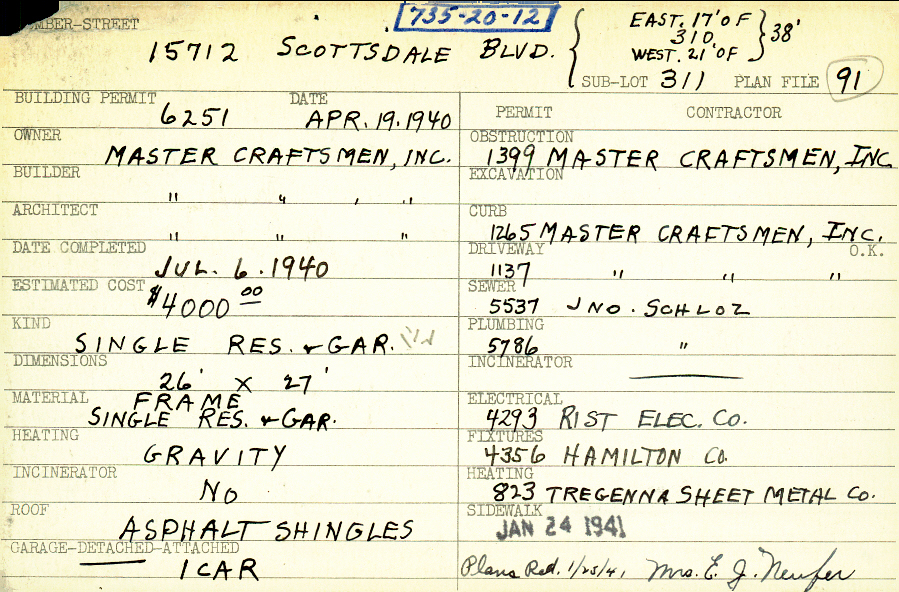 735-20-12
NUMBER-STREET
15712 SCOTTSDALE BLVD.
EAST. 17' OF
310
WEST. 21' OF
38'
SUB-LOT 311 PLAN FILE 91
BUILDING PERMIT DATE
6251 APR. 19. 1940
OWNER
MASTER CRAFTSMEN, INC.
BUILDER
" " , "
ARCHITECT
" " "
DATE COMPLETED
JUL. 6. 1940
ESTIMATED COST
$4000 00
KIND
SINGLE RES. & GAR.
DIMENSIONS
26' X 27'
MATERIAL FRAME
SINGLE RES. & GAR.
HEATING
GRAVITY
INCINERATOR
NO
ROOF
ASPHALT SHINGLES
GARAGE-DETACHED-ATTACHED
1 CAR
PERMIT CONTRACTOR
OBSTRUCTION
1399 MASTER CRAFTSMEN, INC
EXCAVATION
CURB
1265 MASTER CRAFTSMEN, INC.
DRIVEWAY O.K.
1137 " " "
SEWER
5537 JNO. SCHLOZ
PLUMBING
5786 "
INCINERATOR
ELECTRICAL
4293 RIST ELEC. CO.
FIXTURES
4356 HAMILTON CO.
HEATING
823 TREGENNA SHEET METAL CO.
SIDEWALK
JAN 24 1941
Plans Red. 1/25/41 Mrs. E. J. Neufer